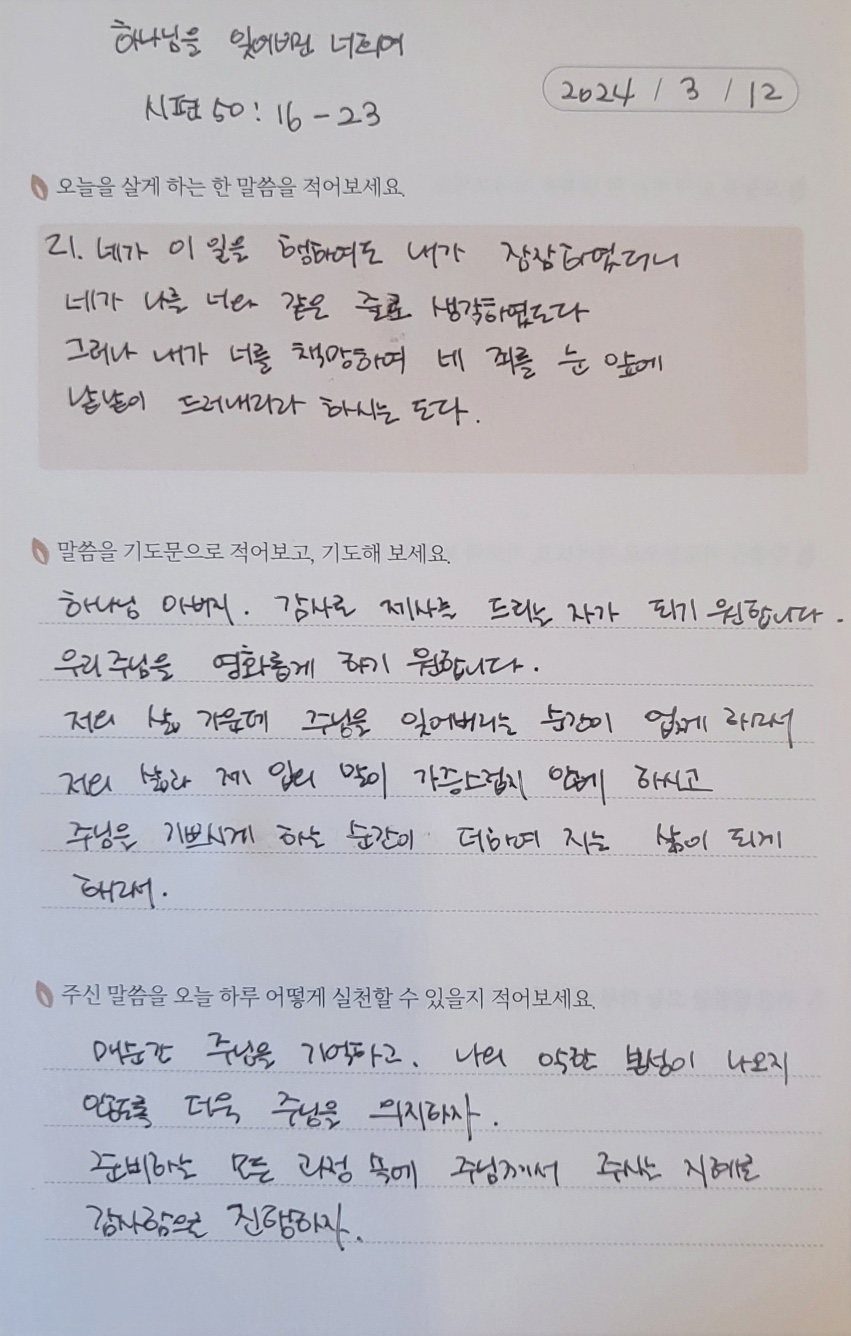 하나님을 잊어버린 너희여
시편 50 : 16 - 23
2024 / 3 / 12
오늘을 살게 하는 한 말씀을 적어보세요.
21. 네가 이 일을 행하여도 내가 잠잠하였더니
네가 나를 너와 같은 줄로 생각하였도다
그러나 내가 너를 책망하여 네 죄를 눈 앞에
낱낱이 드러내리라 하시는 도다.
말씀을 기도문으로 적어보고, 기도해 보세요.
하나님 아버지. 감사로 제사를 드리는 자가 되기 원합니다.
우리 주님을 영화롭게 하기 원합니다.
저의 삶 가운데 주님을 잊어버리는 순간이 없게 하여서
저의 삶과 제 입의 말이 가증스럽지 않게 하시고
주님을 기쁘시게 하는 순간이 더하여 지는 삶이 되게
하여서.
주신 말씀을 오늘 하루 어떻게 실천할 수 있을지 적어보세요.
매순간 주님을 기억하고. 나의 악한 본성이 나오지
않도록 더욱 주님을 의지하자.
준비하는 모든 과정 속에 주님께서 주시는 지혜로
감사함으로 진행하자.